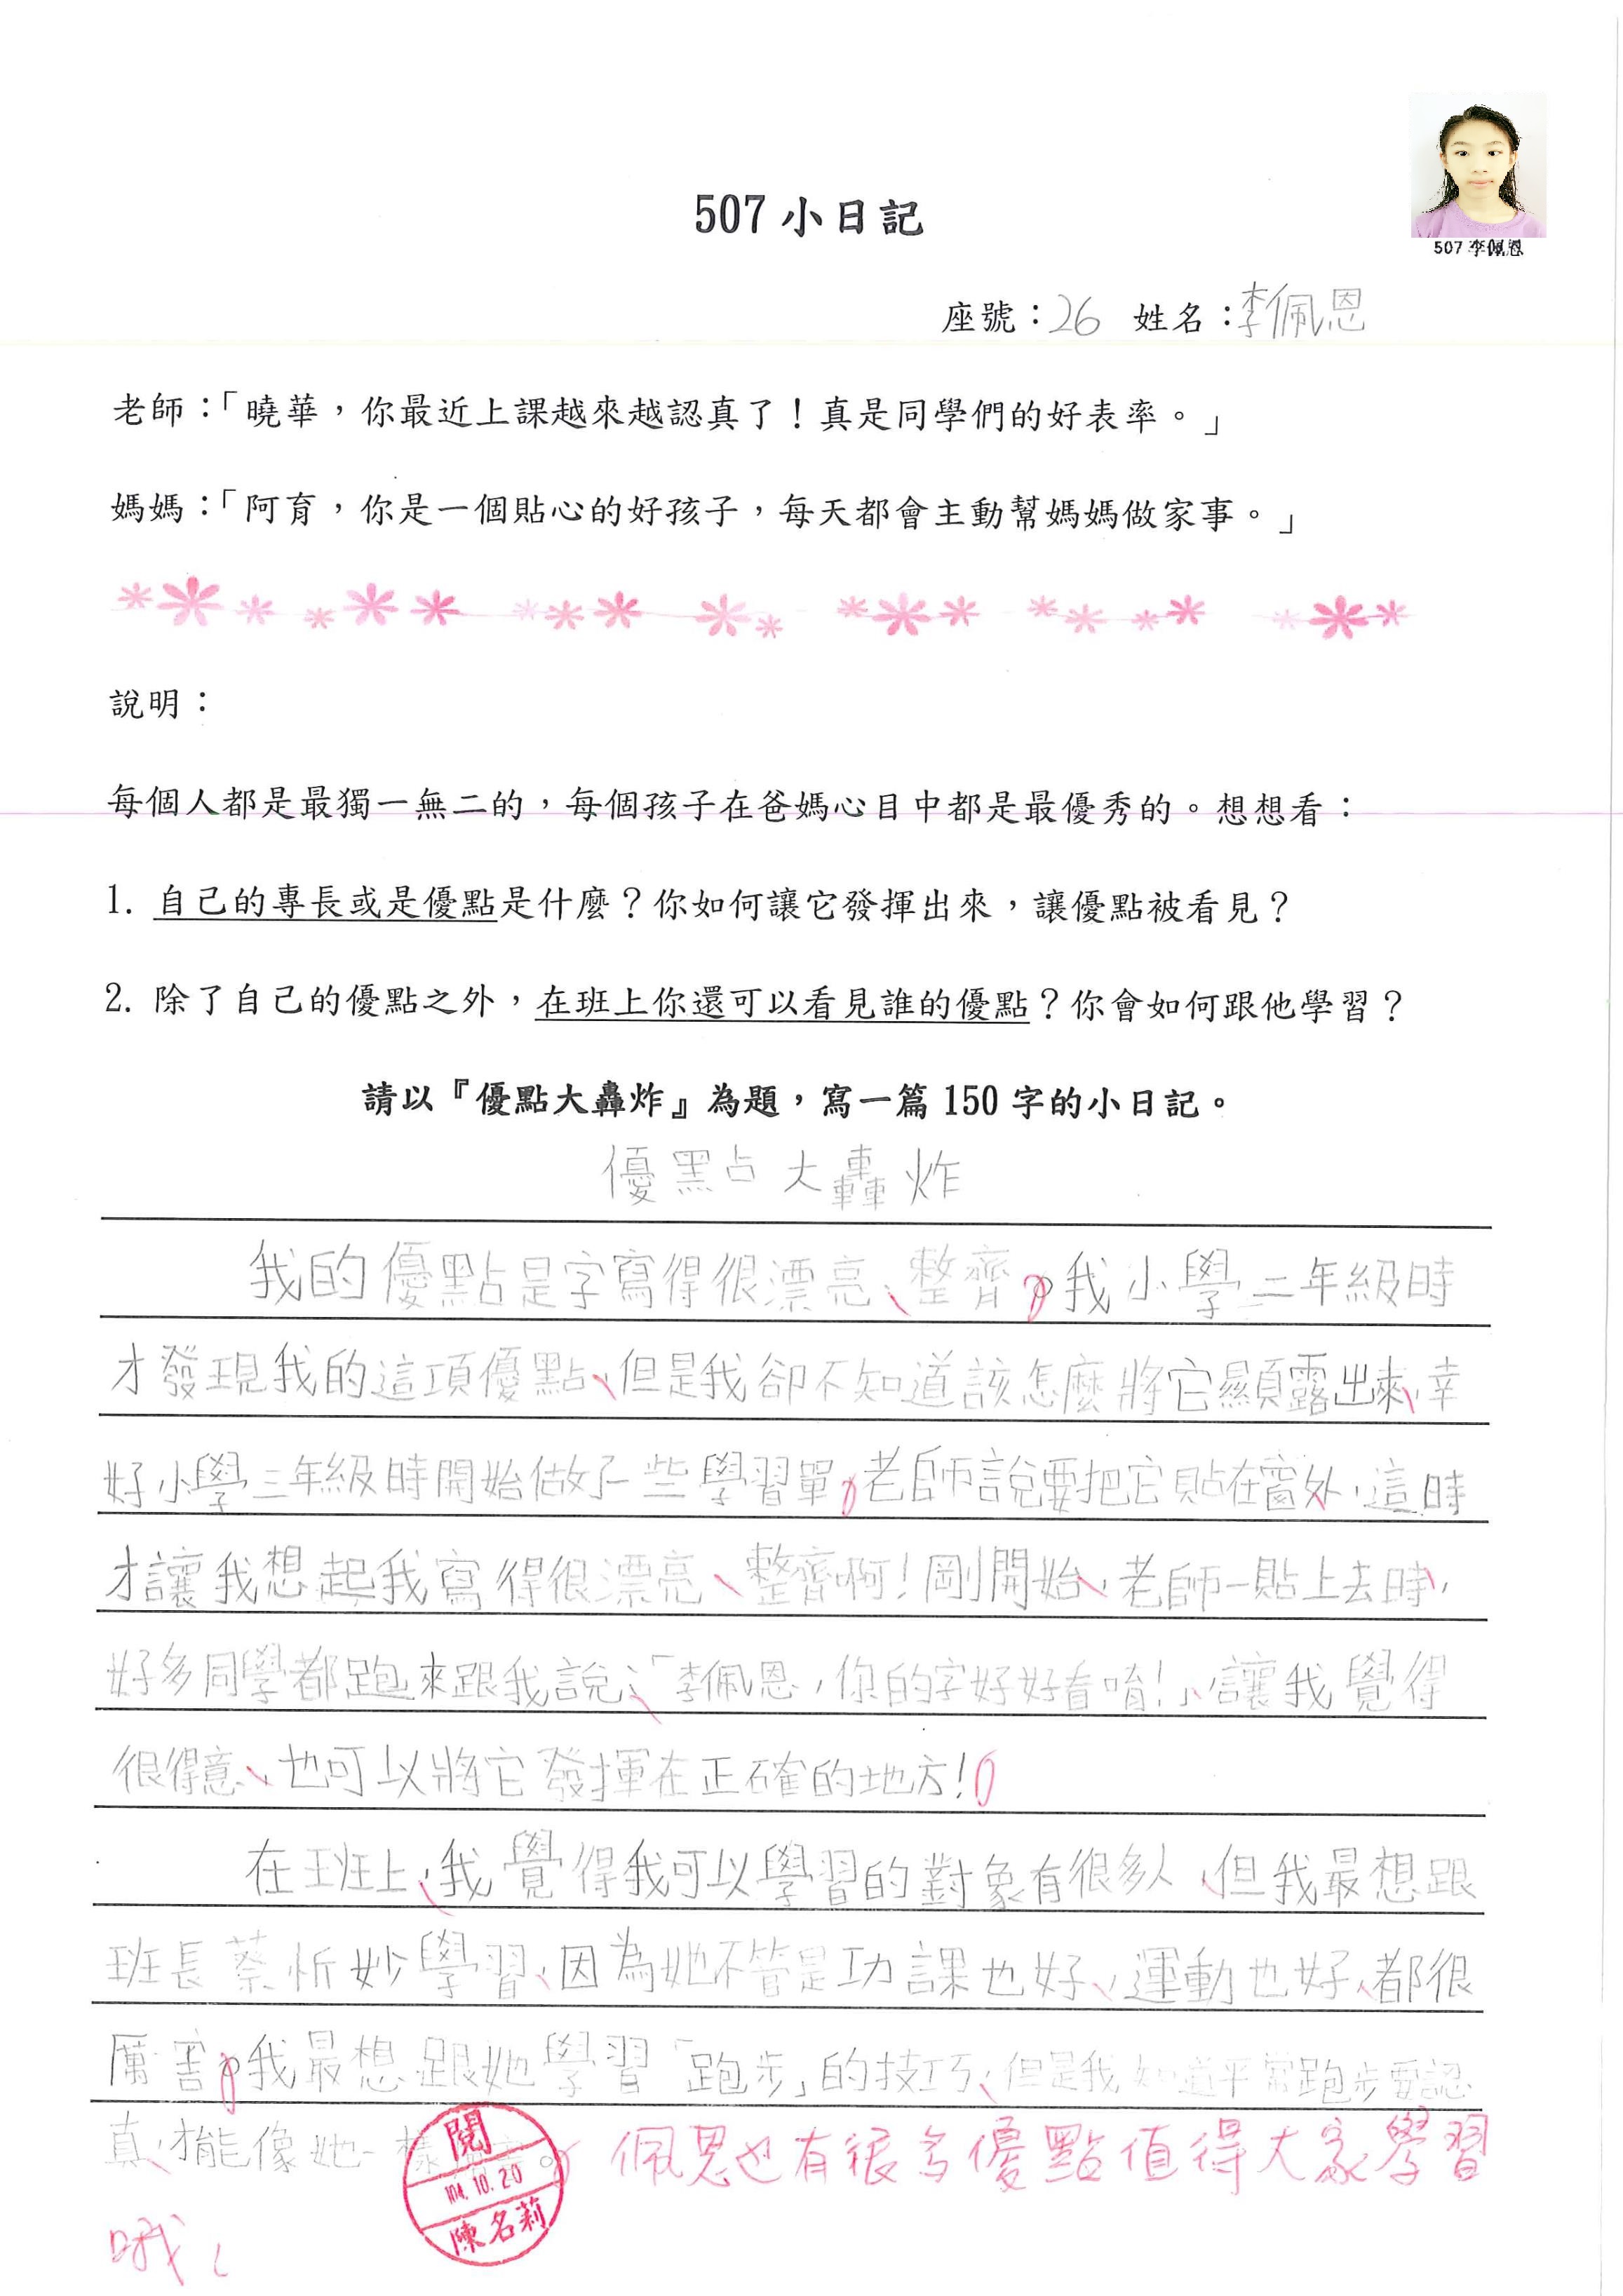 507 李佩恩
507 小日記
座號：26 姓名：李佩恩
老師：「曉華，你最近上課越來越認真了！真是同學們的好表率。」
媽媽：「阿育，你是一個貼心的好孩子，每天都會主動幫媽媽做家事。」
說明：
每個人都是最獨一無二的，每個孩子在爸媽心目中都是最優秀的。想想看：
1. 自己的專長或是優點是什麼？你如何讓它發揮出來，讓優點被看見？
2. 除了自己的優點之外，在班上你還可以看見誰的優點？你會如何跟他學習？
請以『優點大轟炸』為題，寫一篇 150 字的小日記。
優點大轟炸
我的優點是字寫得很漂亮、整齊。我小學二年級時
才發現我的這項優點，但是我卻不知道該怎麼將它顯露出來，幸
好小學三年級時開始做了一些學習單。老師說要把它貼在窗外，這時
才讓我想起我寫得很漂亮、整齊啊！剛開始，老師一貼上去時，
好多同學都跑來跟我說：「李佩恩，你的字好好看唷！」，讓我覺得
很得意，也可以將它發揮在正確的地方！
在班上，我覺得我可以學習的對象有很多人，但我最想跟
班長蔡忻妙學習，因為她不管是功課也好，運動也好，都很
厲害。我最想跟她學習「跑步」的技巧，但是我知道平常跑步要認
真，才能像她一樣。
佩恩也有很多優點值得大家學習
哦！
閱
104.10.20
陳名莉